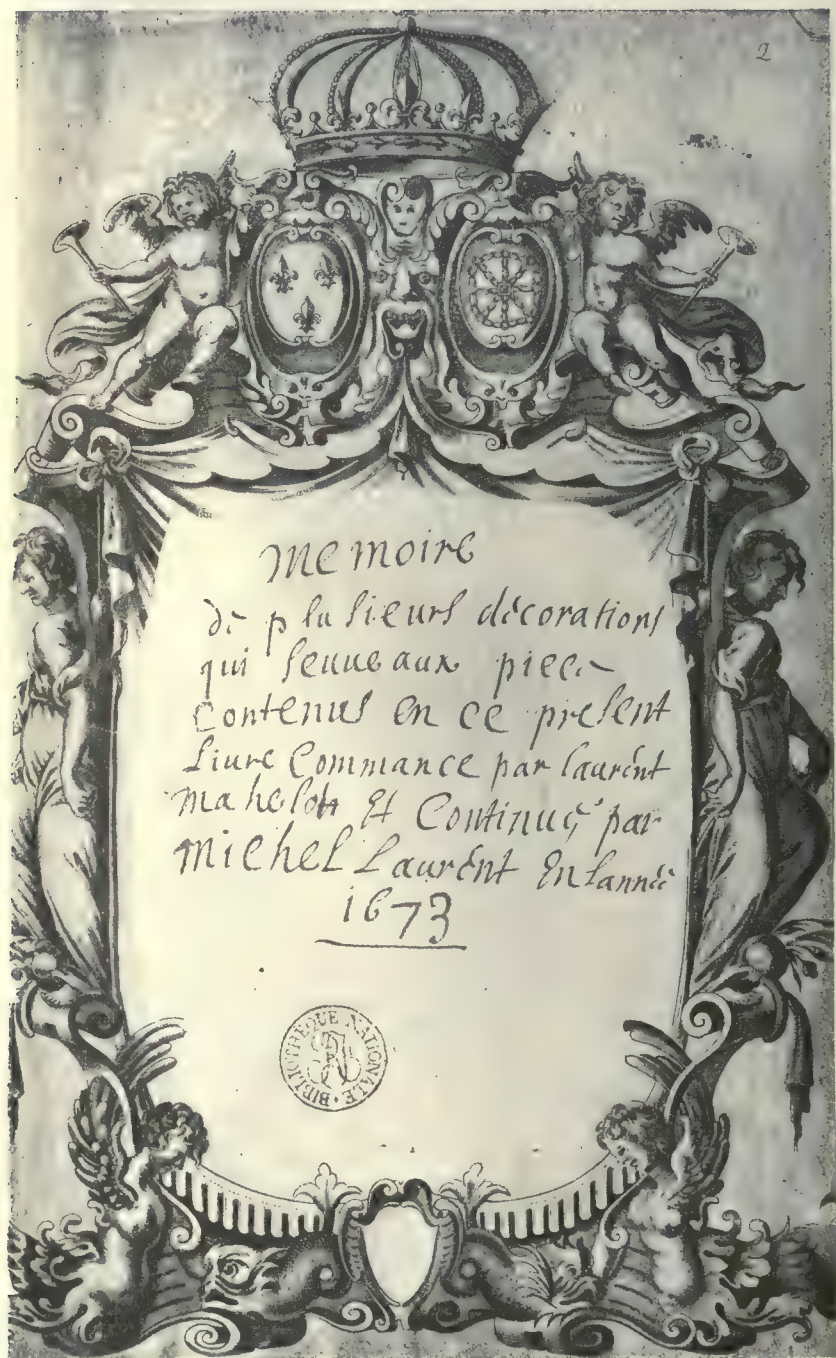 2
Memoire
de plusieurs décorations
qui seruue aux piece
Contenus en ce present
Liure Commance par laurent
mahelot Et Continué par
Michel Laurent En lannée
1673
BIBLIOTHÈQUE NATIONALE